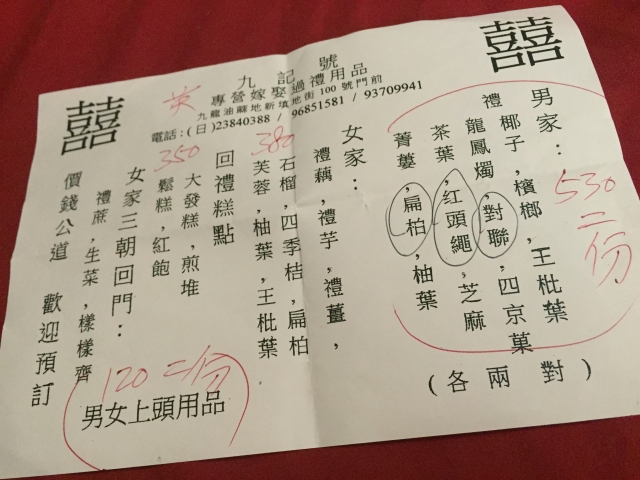 囍
囍
九記號
專營嫁娶過禮用品
九龍油蔴地新填地街 100 號門前
電話:(日)23840388 / 96851581 / 93709941
男家:
禮椰子,檳榔,王枇葉
龍鳳燭,對聯,四京菓
茶葉,红頭繩,芝麻
菁蔞,扁柏,柚葉
(各兩對)
530
二份
女家:
禮藕,禮芋,禮薑,
石榴,四季桔,扁柏
芙蓉,柚葉,王枇葉
380
回禮糕點
大發糕,煎堆
鬆糕,紅飽
350
女家三朝回門:
禮蔗,生菜,樣樣齊
價錢公道 歡迎預訂
120 二份
男女上頭用品